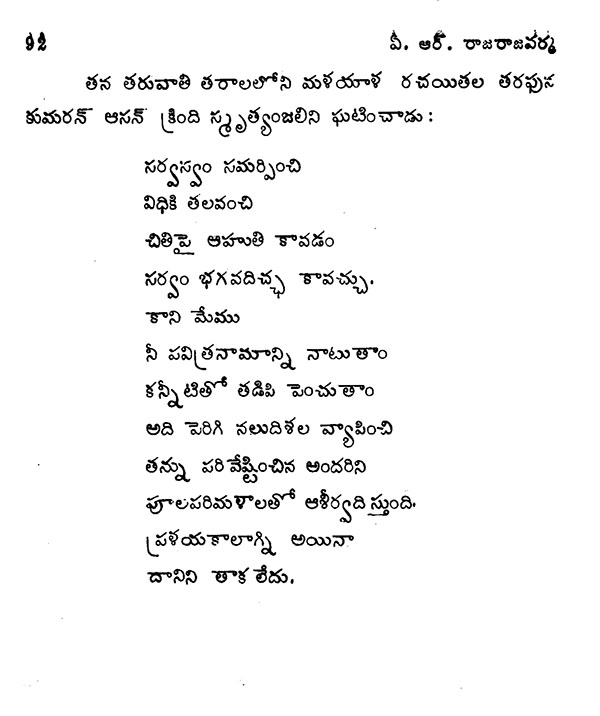 92 వీ. ఆర్. రాజరాజవర్మ
తన తరువాతి తరాలలోని మళయాళ రచయితల తరఫున
కుమరన్ ఆసన్ క్రింది స్మృత్యంజలిని ఘటించాడు :
సర్వస్వం సమర్పించి
విధికి తలవంచి
చితిపై ఆహుతి కావడం
సర్వం భగవదిచ్ఛ కావచ్చు.
కాని మేము
నీ పవిత్రనామాన్ని నాటుతాం
కన్నీటితో తడిపి పెంచుతాం
అది పెరిగి నలుదిశల వ్యాపించి
తన్ను పరివేష్టించిన అందరిని
పూలపరిమళాలతో ఆశీర్వదిస్తుంది.
ప్రళయకాలాగ్ని అయినా
దానిని తాక లేదు.